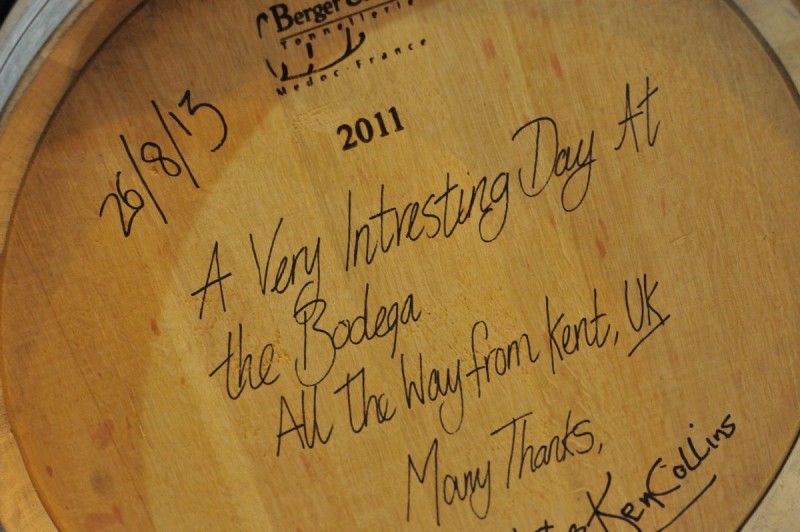 Berger
Tonnellerie
Medoc-France
26/8/13
2011
A Very Intresting Day At
the Bodega
All the Way from Kent, UK
Many Thanks,
Ken Collins